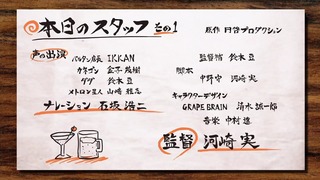 本日のスタッフ その1
声の出演
バルタン星人 IKKAN
カネゴン 金子茂樹
ダダ 鈴木豆
メトロン星人 山崎雅志
ナレーション 石坂浩二
原作 円谷プロダクション
監督補 鈴木豆
脚本
中野守 河崎実
キャラクターデザイン
GRAPE BRAIN 清水誠一郎
音楽 中村遼
監督 河崎実